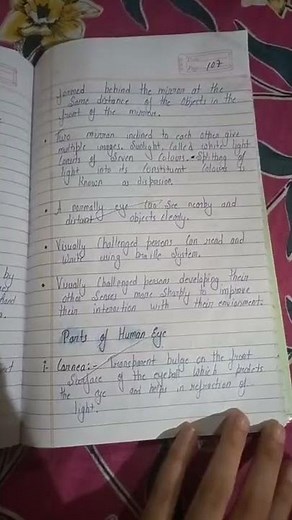 107
formed behind the mirror at the
same distance of the objects in the
front of the mirror.
• Two mirror inclined to each other give
multiple images. Sunlight, Called white light
consits of seven colours. • Splitting of
light into its constituent colours is
known as dispersion.
• A normally eye can see nearby and
distant objects clearly.
• Visually Challenged persons can read and
write using braille system.
• Visually Challenged persons developing their
other senses more sharply to improve
their interaction with their enviorments
Parts of Human Eye
1- Cornea:- Transparent bulge on the front
surface of the eyeball which protects
the eye and helps in refraction of
light.
by